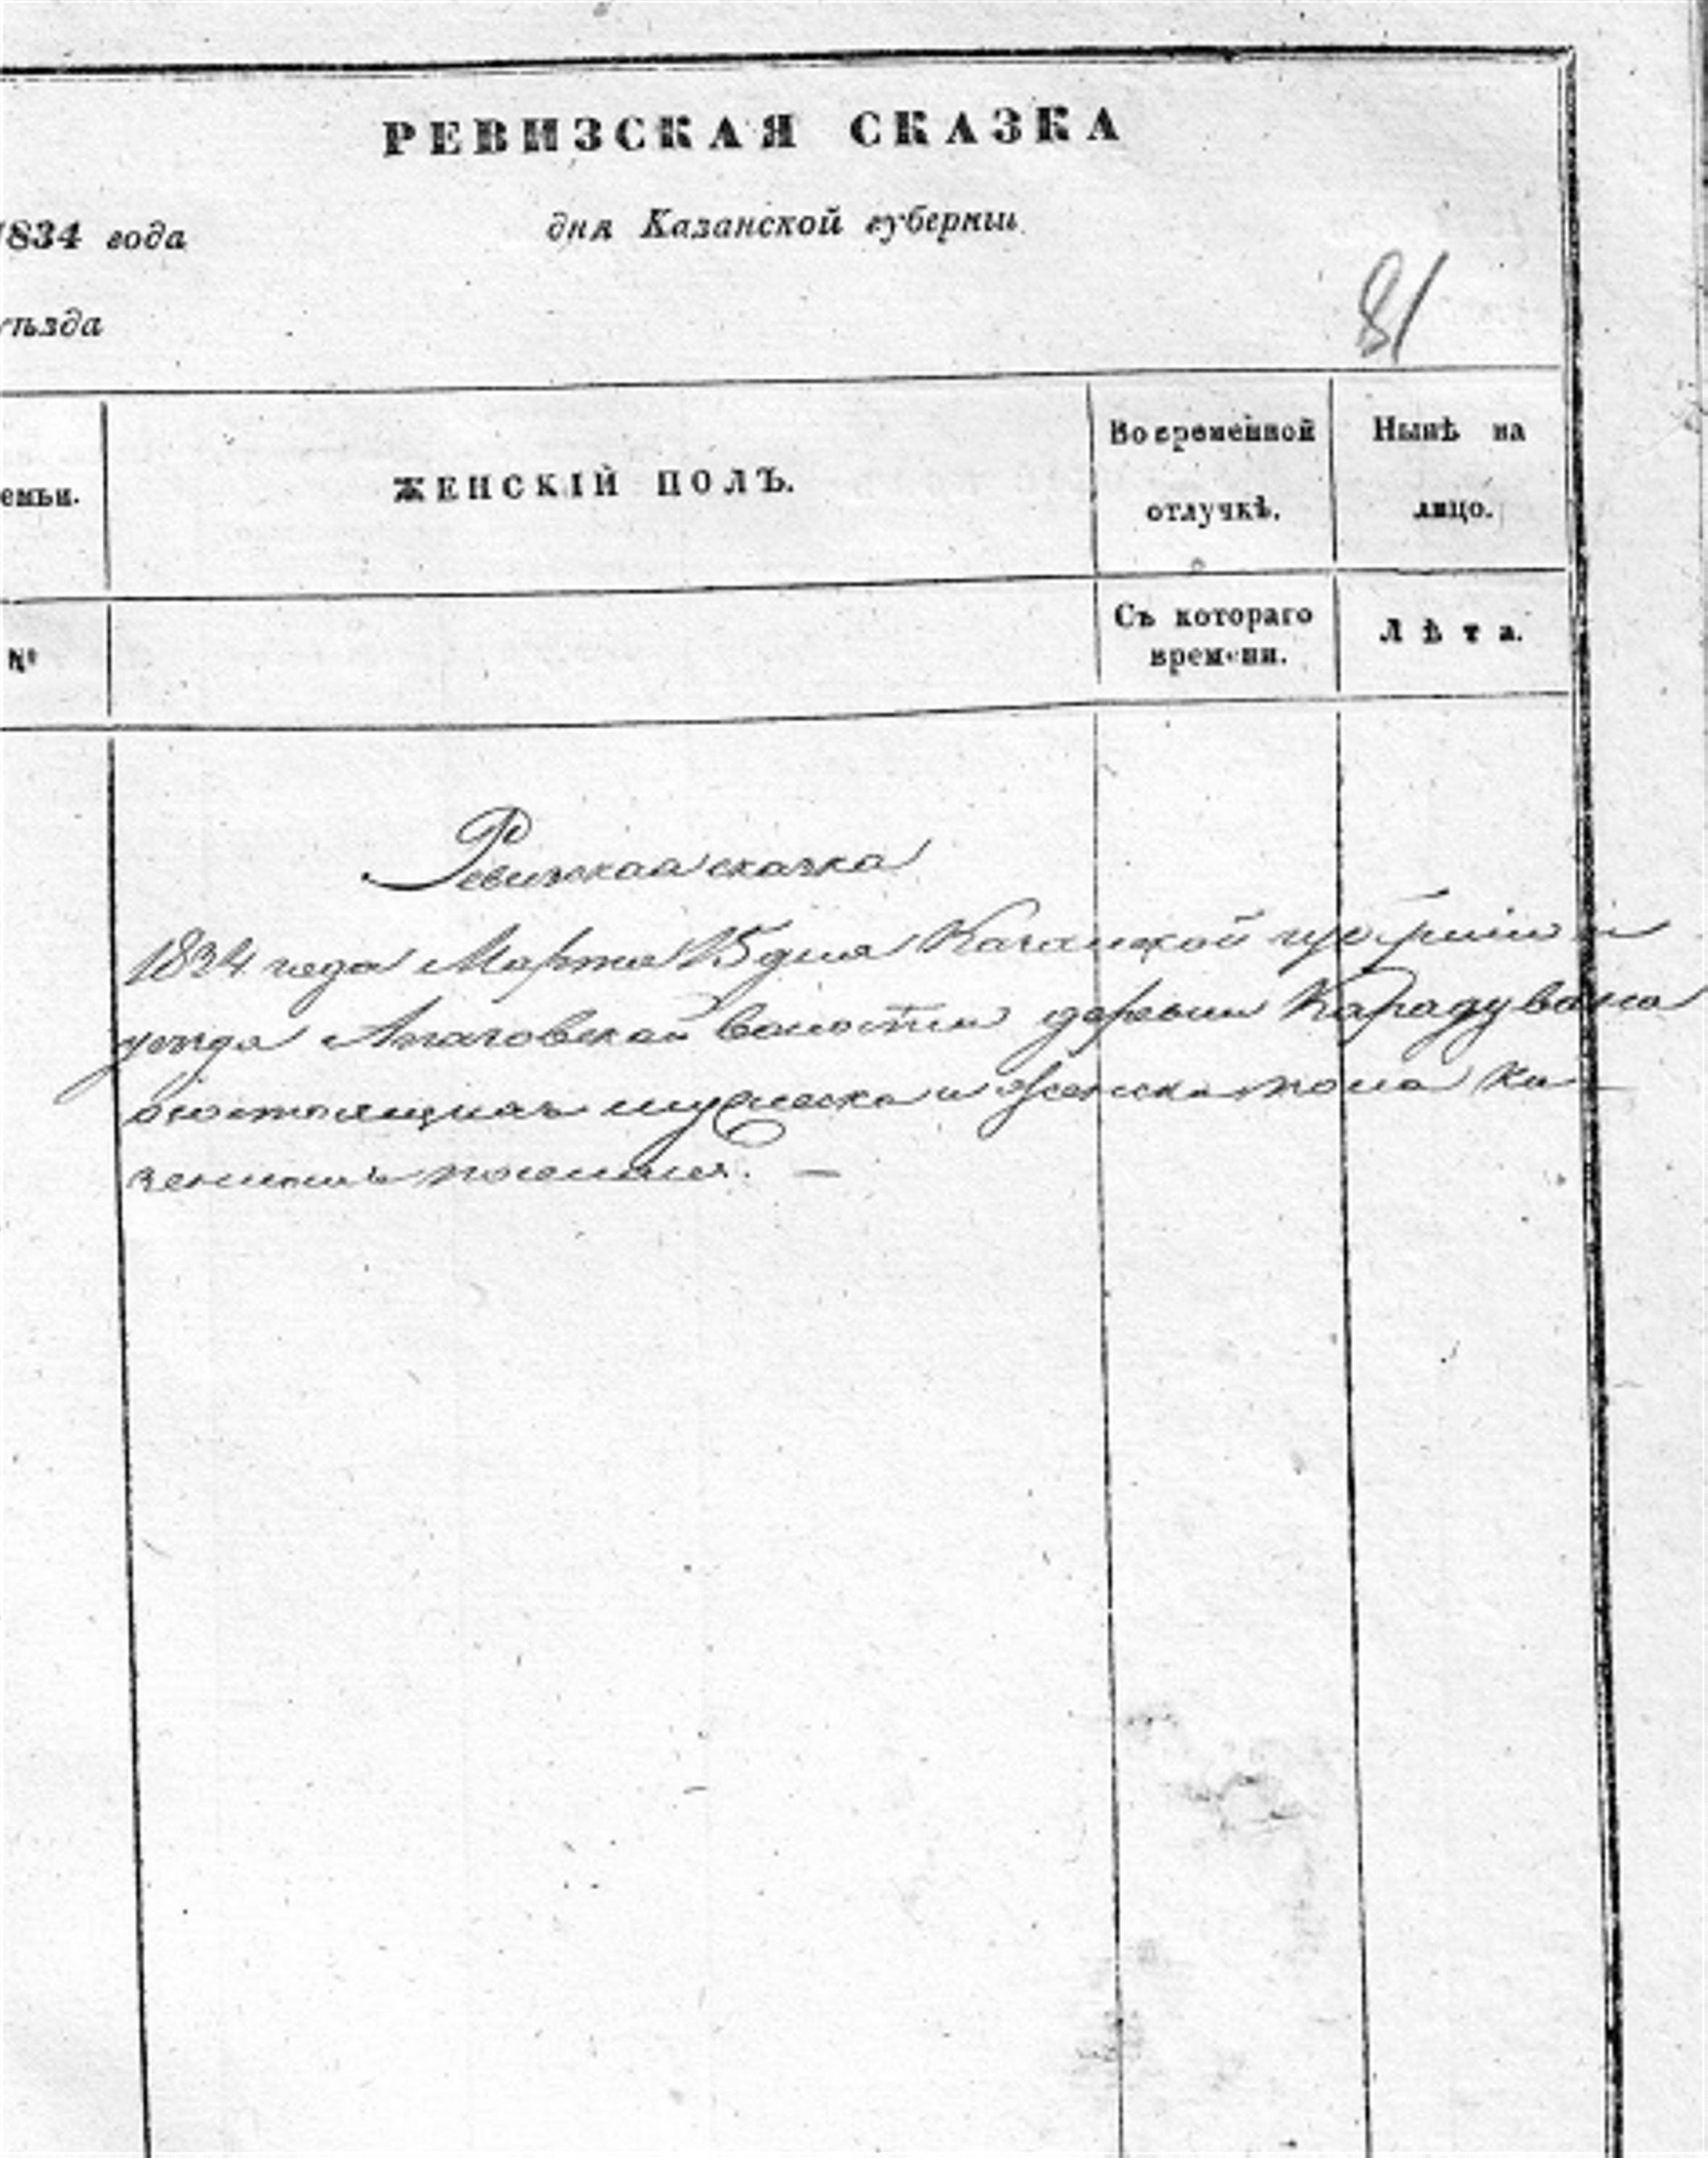 РЕВИЗСКАЯ СКАЗКА
1834 года дня Казанской губернии
уѣзда
81
емьи. ЖЕНСКІЙ ПОЛЪ. Во временной отлучкѣ. Нынѣ на лицо.
№ Съ котораго времени. Лѣта.
Ревизская сказка
1834 года Марта 15 дня Казанской губернии и
уезда Апазовской волости деревни Карадувана
состоящихъ мужеска и женска пола ка